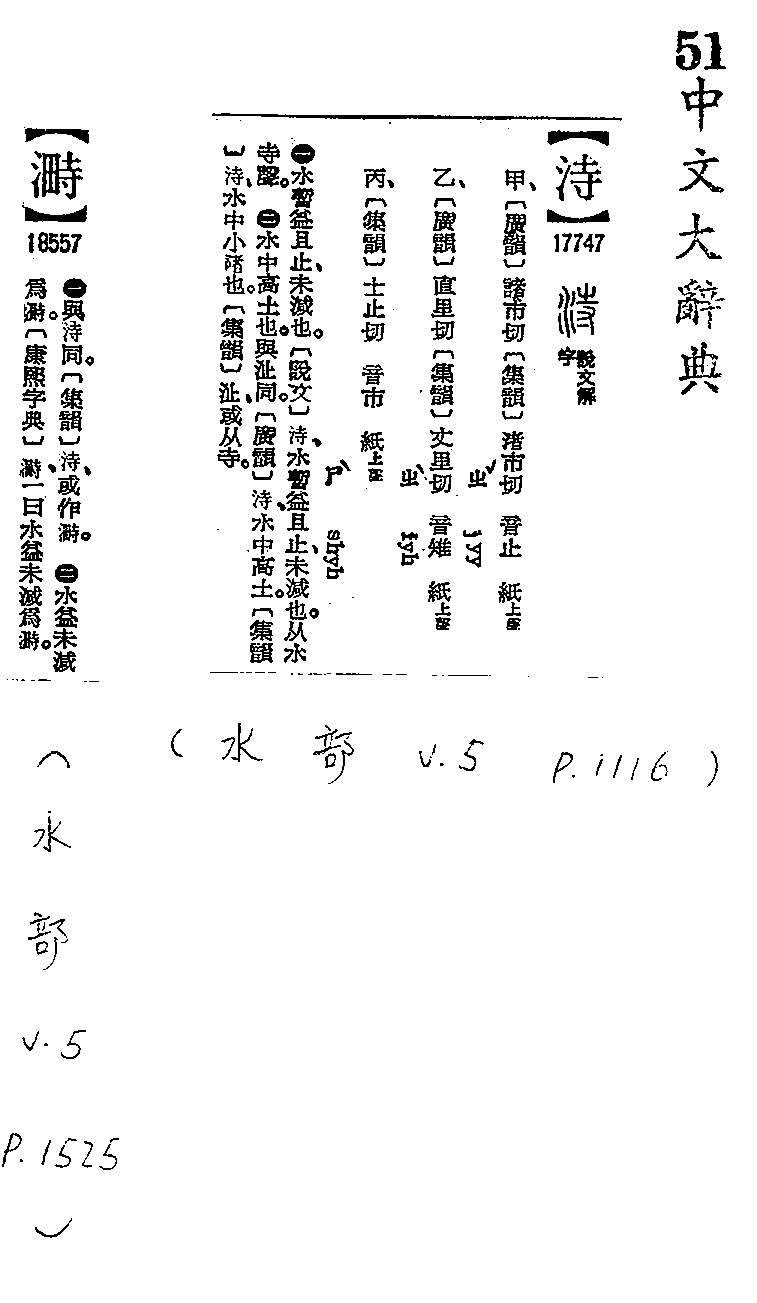 51中文大辭典
【洔】
17747
說文解
字
甲、〔廣韻〕諸市切〔集韻〕渚市切 音止 紙上聲
ㄓˇ jyy
乙、〔廣韻〕直里切〔集韻〕丈里切 音雉 紙上聲
ㄓˋ jyh
丙、〔集韻〕士止切 音市 紙上聲
ㄕˋ shyh
㊀水暫益且止、未減也。〔說文〕洔、水暫益且止、未減也。从水
寺聲。㊁水中高土也。與沚同。〔廣韻〕洔、水中高土。〔集韻
〕洔、水中小渚也。〔集韻〕沚、或从寺。
【濣】
18557
㊀與洔同。〔集韻〕洔、或作。㊁水益未減
爲。〔康熙字典〕、一曰水益未減爲。
(水部 v.5 P.1116)
(水部 v.5 P.1525)